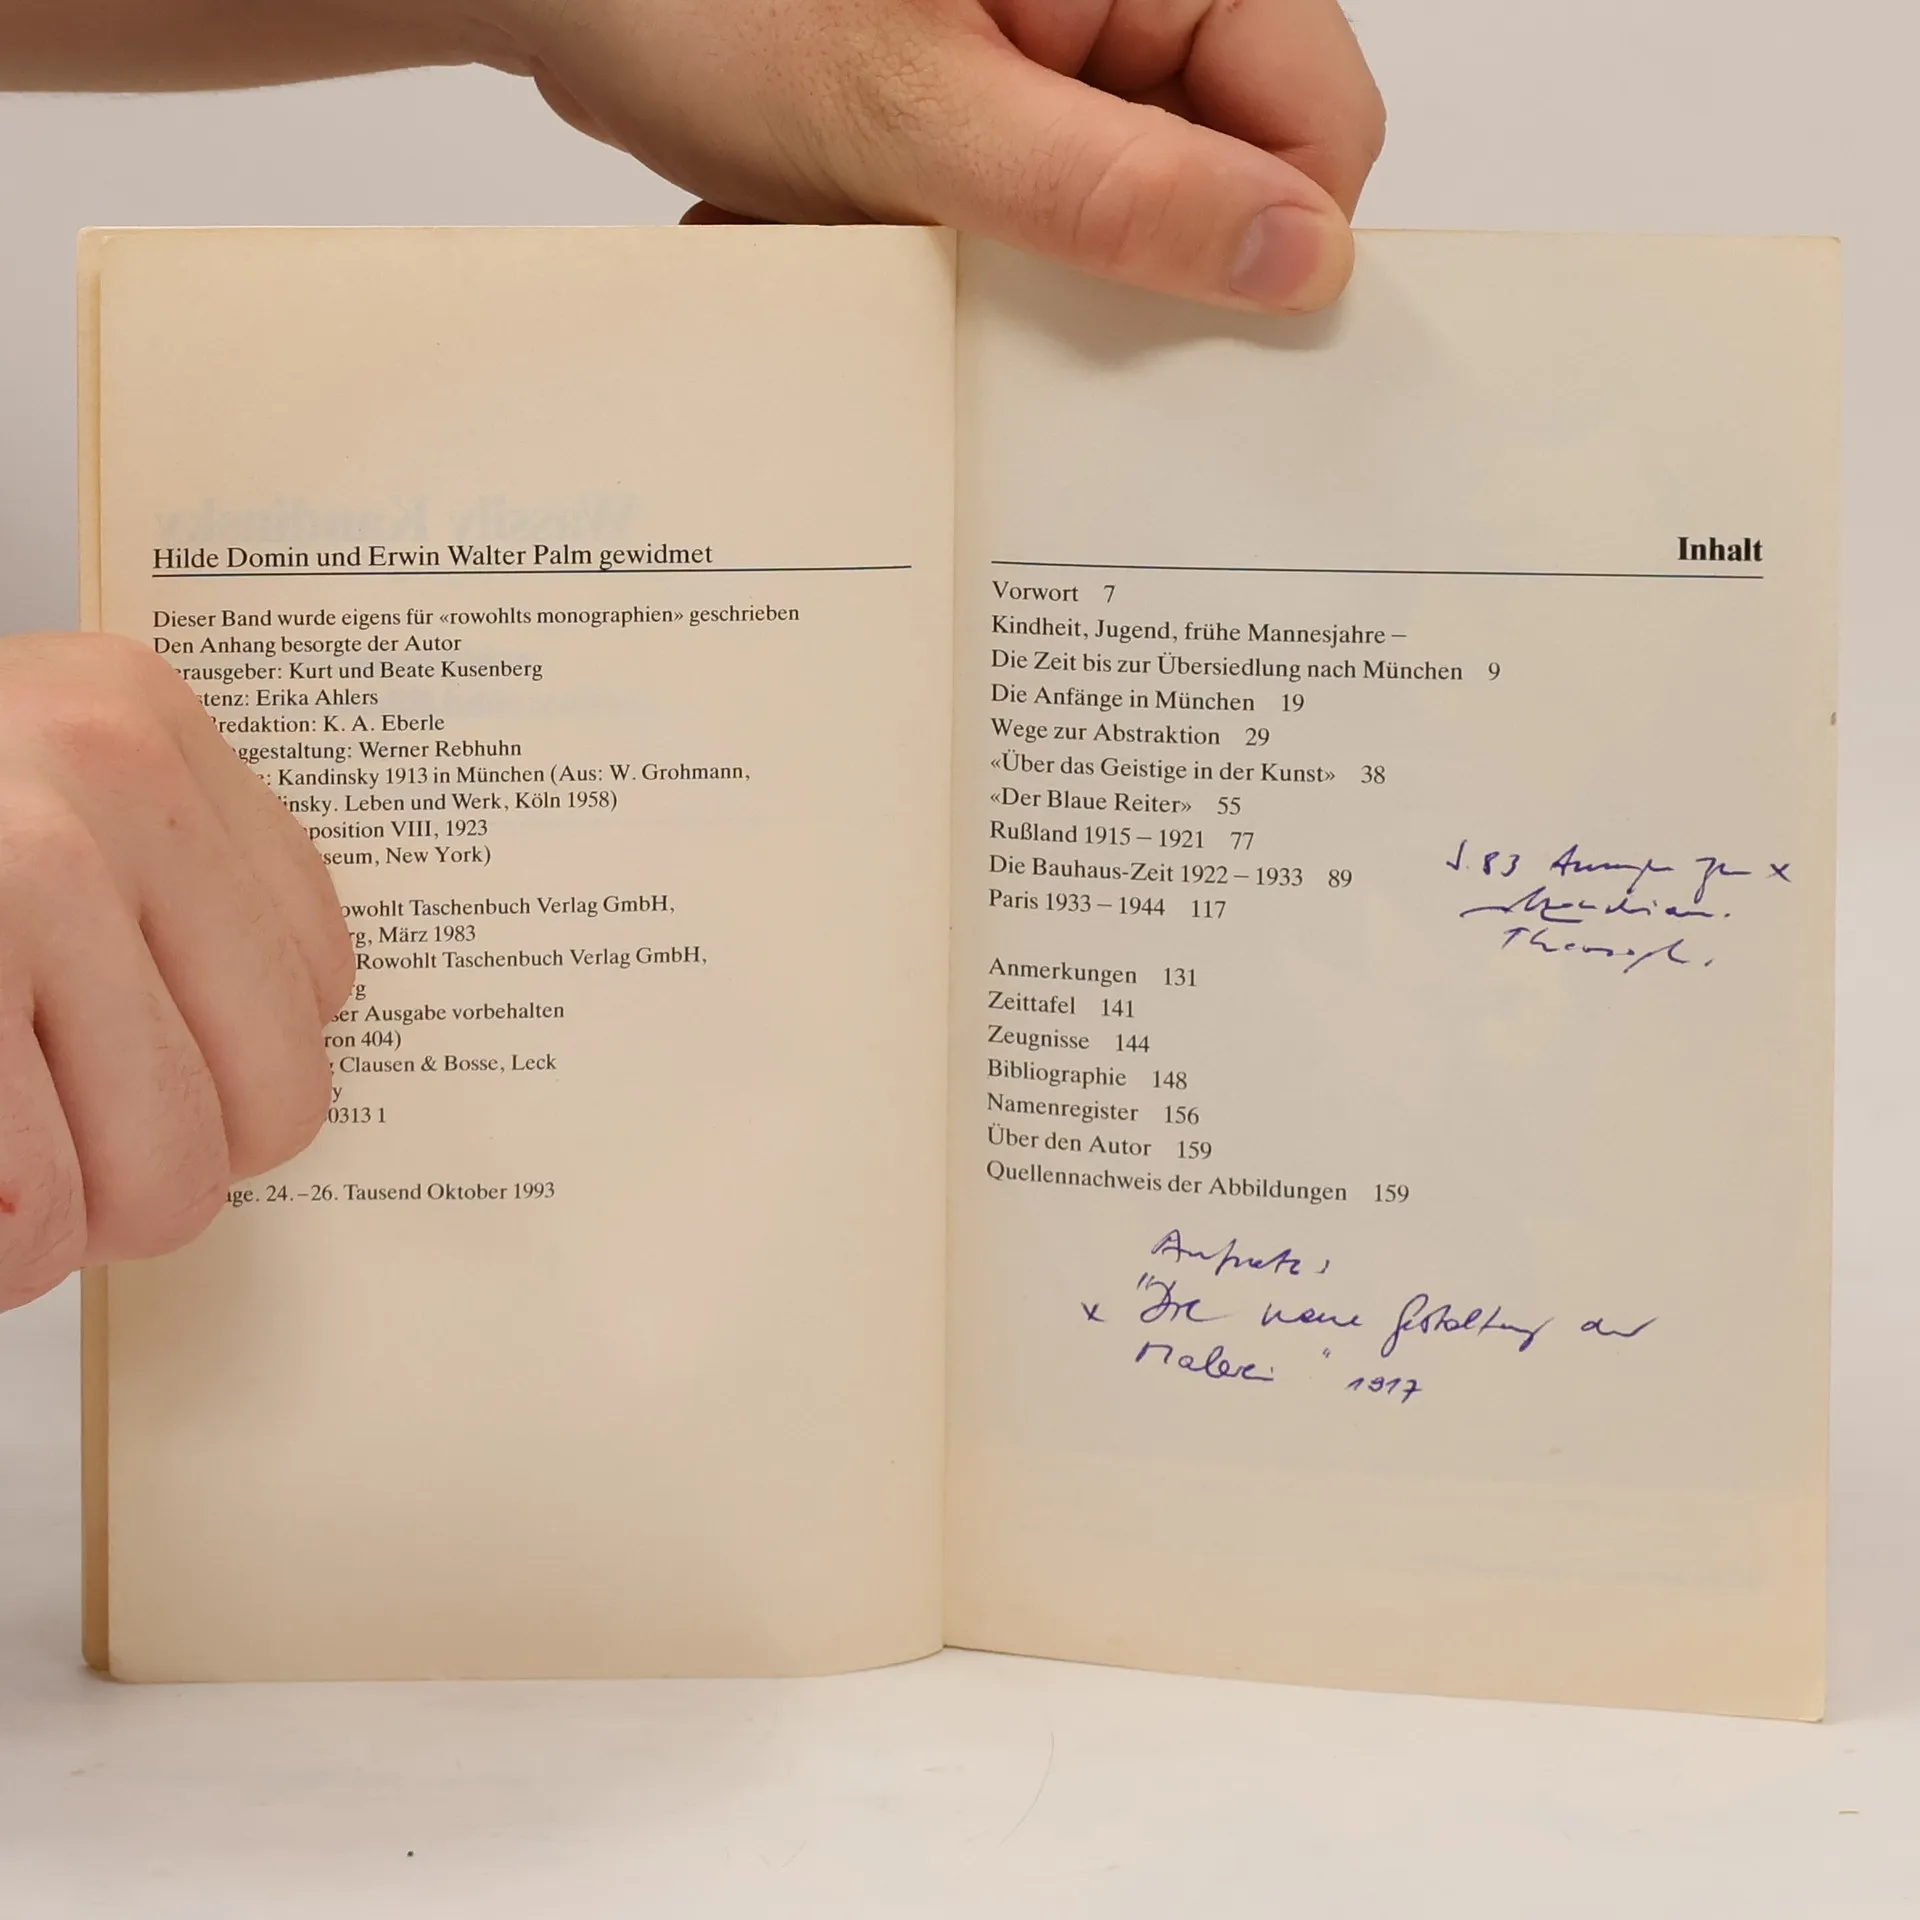 Wassily Kandinsky
Hilde Domin und Erwin Walter Palm gewidmet
Dieser Band wurde eigens für «rowohlts monographien» geschrieben
Den Anhang besorgte der Autor
erausgeber: Kurt und Beate Kusenberg
stenz: Erika Ahlers
redaktion: K. A. Eberle
ggestaltung: Werner Rebhuhn
: Kandinsky 1913 in München (Aus: W. Grohmann,
insky. Leben und Werk, Köln 1958)
position VIII, 1923
seum, New York)
owohlt Taschenbuch Verlag GmbH,
rg, März 1983
Rowohlt Taschenbuch Verlag GmbH,
rg
ser Ausgabe vorbehalten
ron 404)
g Clausen & Bosse, Leck
y
0313 1
age. 24.–26. Tausend Oktober 1993
Inhalt
Vorwort 7
Kindheit, Jugend, frühe Mannesjahre –
Die Zeit bis zur Übersiedlung nach München 9
Die Anfänge in München 19
Wege zur Abstraktion 29
«Über das Geistige in der Kunst» 38
«Der Blaue Reiter» 55
Rußland 1915 – 1921 77
Die Bauhaus-Zeit 1922 – 1933 89
Paris 1933 – 1944 117
S. 83 x
Mondrian.
Theosoph.
Anmerkungen 131
Zeittafel 141
Zeugnisse 144
Bibliographie 148
Namenregister 156
Über den Autor 159
Quellennachweis der Abbildungen 159
Aufsatz:
x "Die neue Gestaltung der
Malerei" 1917